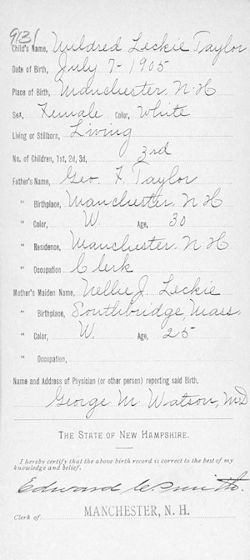 9131
Child's Name, Mildred Leckie Taylor
Date of Birth, July 7-1905
Place of Birth, Manchester, N.H
Sex, Female Color, White
Living or Stillborn, Living
No. of Children, 1st, 2d, 3d, 3rd
Father's Name, Geo. F. Taylor
" Birthplace, Manchester N H
" Color, W. Age, 30
" Residence, Manchester N H
" Occupation Clerk
Mother's Maiden Name, Nellie J. Leckie
" Birthplace, Southbridge Mass
" Color, W. Age, 25
" Occupation,
Name and Address of Physician (or other person) reporting said Birth,
George M. Watson, M.D
THE STATE OF NEW HAMPSHIRE.
I hereby certify that the above birth record is correct to the best of my
knowledge and belief.
Edward C. Smith.
Clerk of MANCHESTER, N. H.